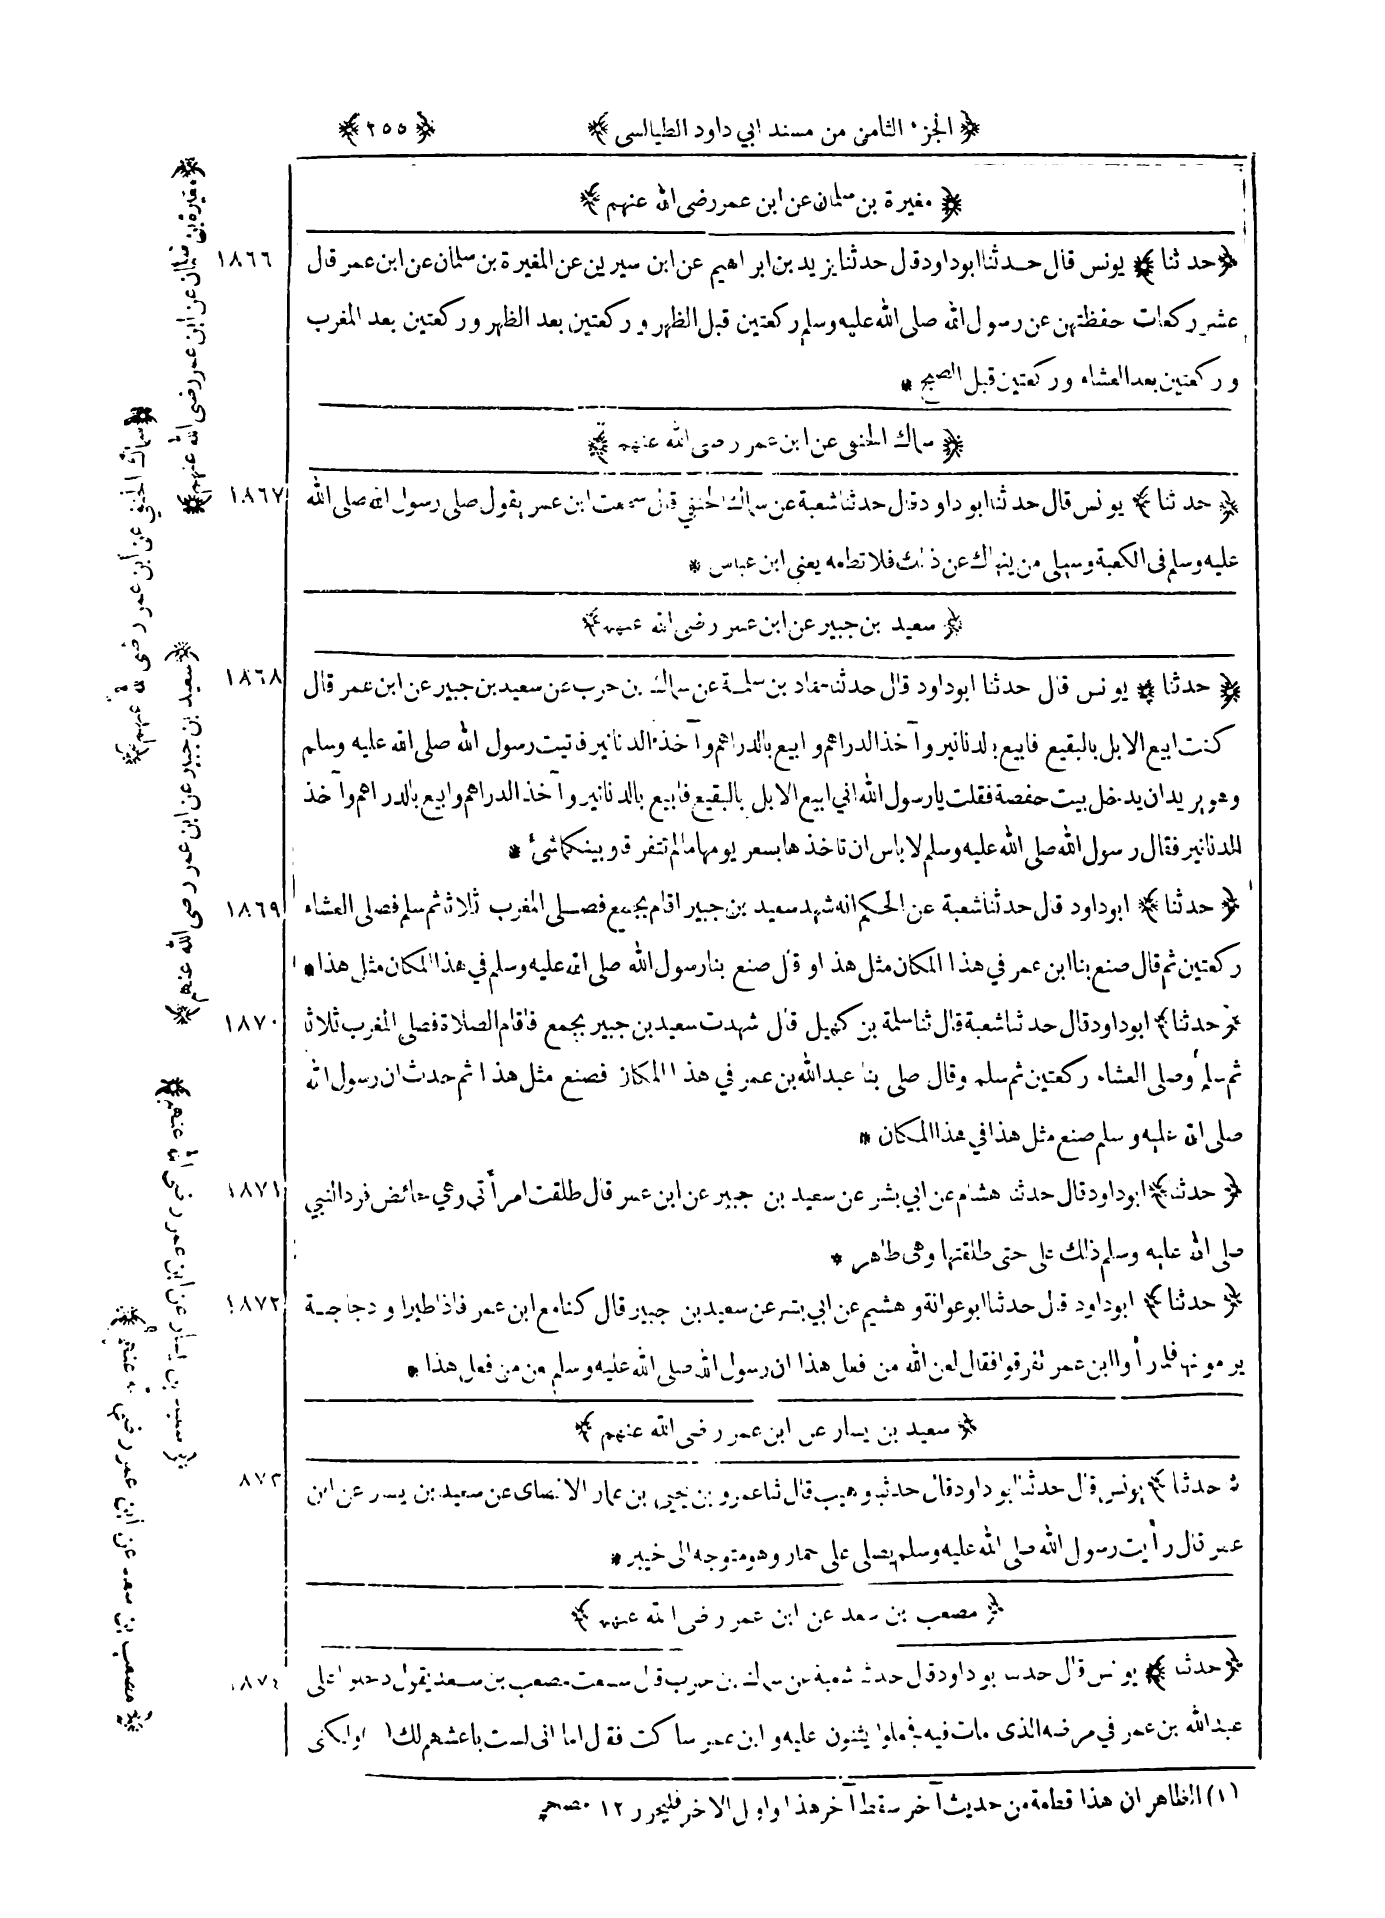 ﴿ الجزء الثامن من مسند ابي داود الطيالسى ﴾ ﴿ ٢٥٥ ﴾
﴿ مغيرة بن سلمان عن ابن عمر رضى الله عنهم ﴾
١٨٦٦ ﴿ حدثنا ﴾ يونس قال حدثنا ابوداود قال حدثنا يزيد بن ابراهيم عن ابن سيرين عن المغيرة بن سلمان عن ابن عمر قال
عشر ركعات حفظتهن عن رسول الله صلى الله عليه وسلم ركعتين قبل الظهر و ركعتين بعد الظهر و ركعتين بعد المغرب
و ركعتين بعد العشاء و ركعتين قبل الصبح *
﴿ سماك الحنفى عن ابن عمر رضى الله عنهم ﴾
١٨٦٧ ﴿ حدثنا ﴾ يونس قال حدثنا ابو داود قال حدثنا شعبة عن سماك الحنفي قال سمعت ابن عمر يقول صلى رسول الله صلى الله
عليه وسلم فى الكعبة وسيلى من ينهاك عن ذلك فلا تطعه يعنى ابن عباس *
﴿ سعيد بن جبير عن ابن عمر رضى الله عنهم ﴾
١٨٦٨ ﴿ حدثنا ﴾ يونس قال حدثنا ابوداود قال حدثنا حماد بن سلمة عن سماك بن حرب عن سعيد بن جبير عن ابن عمر قال
كنت ابيع الابل بالبقيع فابيع بالدنانير وآخذ الدراهم وابيع بالدراهم وآخذ الدنانير فاتيت رسول الله صلى الله عليه وسلم
وهو يريد ان يدخل بيت حفصة فقلت يا رسول الله اني ابيع الابل بالبقيع فابيع بالدنانير وآخذ الدراهم وابيع بالدراهم وآخذ
الدنانير فقال رسول الله صلى الله عليه وسلم لا باس ان تاخذها بسعر يومها ما لم تتفرقا وبينكما شئ *
١٨٦٩ ﴿ حدثنا ﴾ ابوداود قال حدثنا شعبة عن الحكم انه شهد سعيد بن جبير اقام بجمع فصلى المغرب ثلاثا ثم سلم فصلى العشاء
ركعتين ثم قال صنع بنا ابن عمر في هذا المكان مثل هذا و قال صنع بنا رسول الله صلى الله عليه وسلم في هذا المكان مثل هذا *
١٨٧٠ ﴿ حدثنا ﴾ ابوداود قال حدثنا شعبة قال ثنا سلمة بن كهيل قال شهدت سعيد بن جبير بجمع فاقام الصلاة فصلى المغرب ثلاثا
ثم سلم وصلى العشاء ركعتين ثم سلم وقال صلى بنا عبدالله بن عمر في هذا المكان فصنع مثل هذا ثم حدث ان رسول الله
صلى الله عليه وسلم صنع مثل هذا في هذا المكان *
١٨٧١ ﴿ حدثنا ﴾ ابوداود قال حدثنا هشام عن ابي بشر عن سعيد بن جبير عن ابن عمر قال طلقت امرأتى وهي حائض فرد النبي
صلى الله عليه وسلم ذلك على حتى طلقتها وهى طاهر *
١٨٧٢ ﴿ حدثنا ﴾ ابوداود قال حدثنا ابوعوانة و هشيم عن ابي بشر عن سعيد بن جبير قال كنا مع ابن عمر فاذا طيرا و دجاجة
يرمونها فلما رأوا ابن عمر تفرقوا فقال لعن الله من فعل هذا ان رسول الله صلى الله عليه وسلم لعن من فعل هذا *
﴿ سعيد بن يسار عن ابن عمر رضى الله عنهم ﴾
٨٧٣ حدثنا ﴾ يونس قال حدثنا ابو داود قال حدثنا وهيب قال ثنا عمرو بن يحيى بن عمار الانصاى عن سعيد بن يسار عن ابن
عمر قال رأيت رسول الله صلى الله عليه وسلم يصلى على حمار وهو متوجه الى خيبر *
﴿ مصعب بن سعد عن ابن عمر رضى الله عنهم ﴾
١٨٧٤ ﴿ حدثنا ﴾ يونس قال حدثنا ابو داود قال حدثنا شعبة عن سماك بن حرب قال سمعت مصعب بن سعد يقول دخلوا على
عبدالله بن عمر في مرضه الذى مات فيه فجعلوا يثنون عليه و ابن عمر ساكت فقال اما انى لست باغشهم لك (١) ولكنى
(١) الظاهر ان هذا قطعة من حديث آخر سقط آخر هذا واول الاخر فليحرر ١٢ مصحح
﴿ مغيرة بن سلمان عن ابن عمر رضى الله عنهم ﴾
﴿ سماك الحنفي عن ابن عمر رضى الله عنهم ﴾
﴿ سعيد بن جبير عن ابن عمر رضى الله عنهم ﴾
﴿ سعيد بن يسار عن ابن عمر رضى الله عنهم ﴾
﴿ مصعب بن سعد عن ابن عمر رضي الله عنهم ﴾